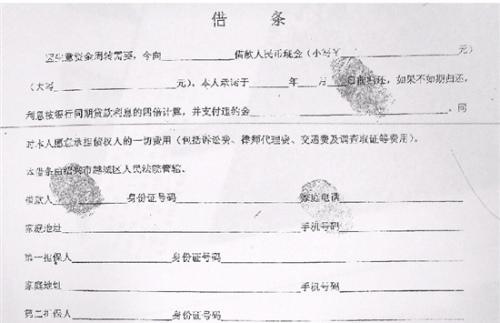 借 条
因生意资金周转需要，今向____________借款人民币现金（小写￥____________元）
（大写____________元），本人承诺于______年___月___日前归还，如果不如期归还，
利息按银行同期贷款利息的四倍计算，并支付违约金____________、同
时本人愿意承担债权人的一切费用（包括诉讼费、律师代理费、交通费及调查取证等费用）。
本借条由绍兴市越城区人民法院管辖、
借款人____________身份证号码____________家庭电话____________
家庭地址____________手机号码____________
第一担保人____________身份证号码____________
家庭地址____________手机号码____________
第二担保人____________身份证号码____________